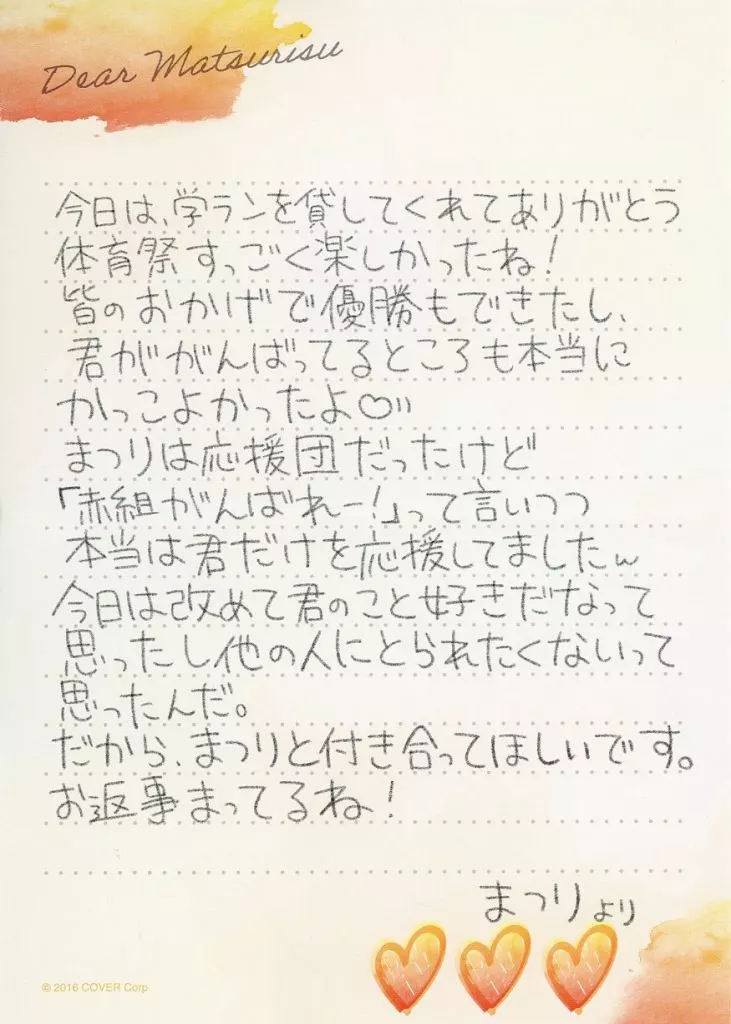 Dear Matsurisu
今日は、学ランを貸してくれてありがとう
体育祭すっごく楽しかったね!
皆のおかげで優勝もできたし、
君ががんばってるところも本当に
かっこよかったよ♡〃
まつりは応援団だったけど
「赤組がんばれー!」って言いつつ
本当は君だけを応援してましたw
今日は改めて君のこと好きだなって
思ったし他の人にとられたくないって
思ったんだ。
だから、まつりと付き合ってほしいです。
お返事まってるね!
まつりより
© 2016 COVER Corp.